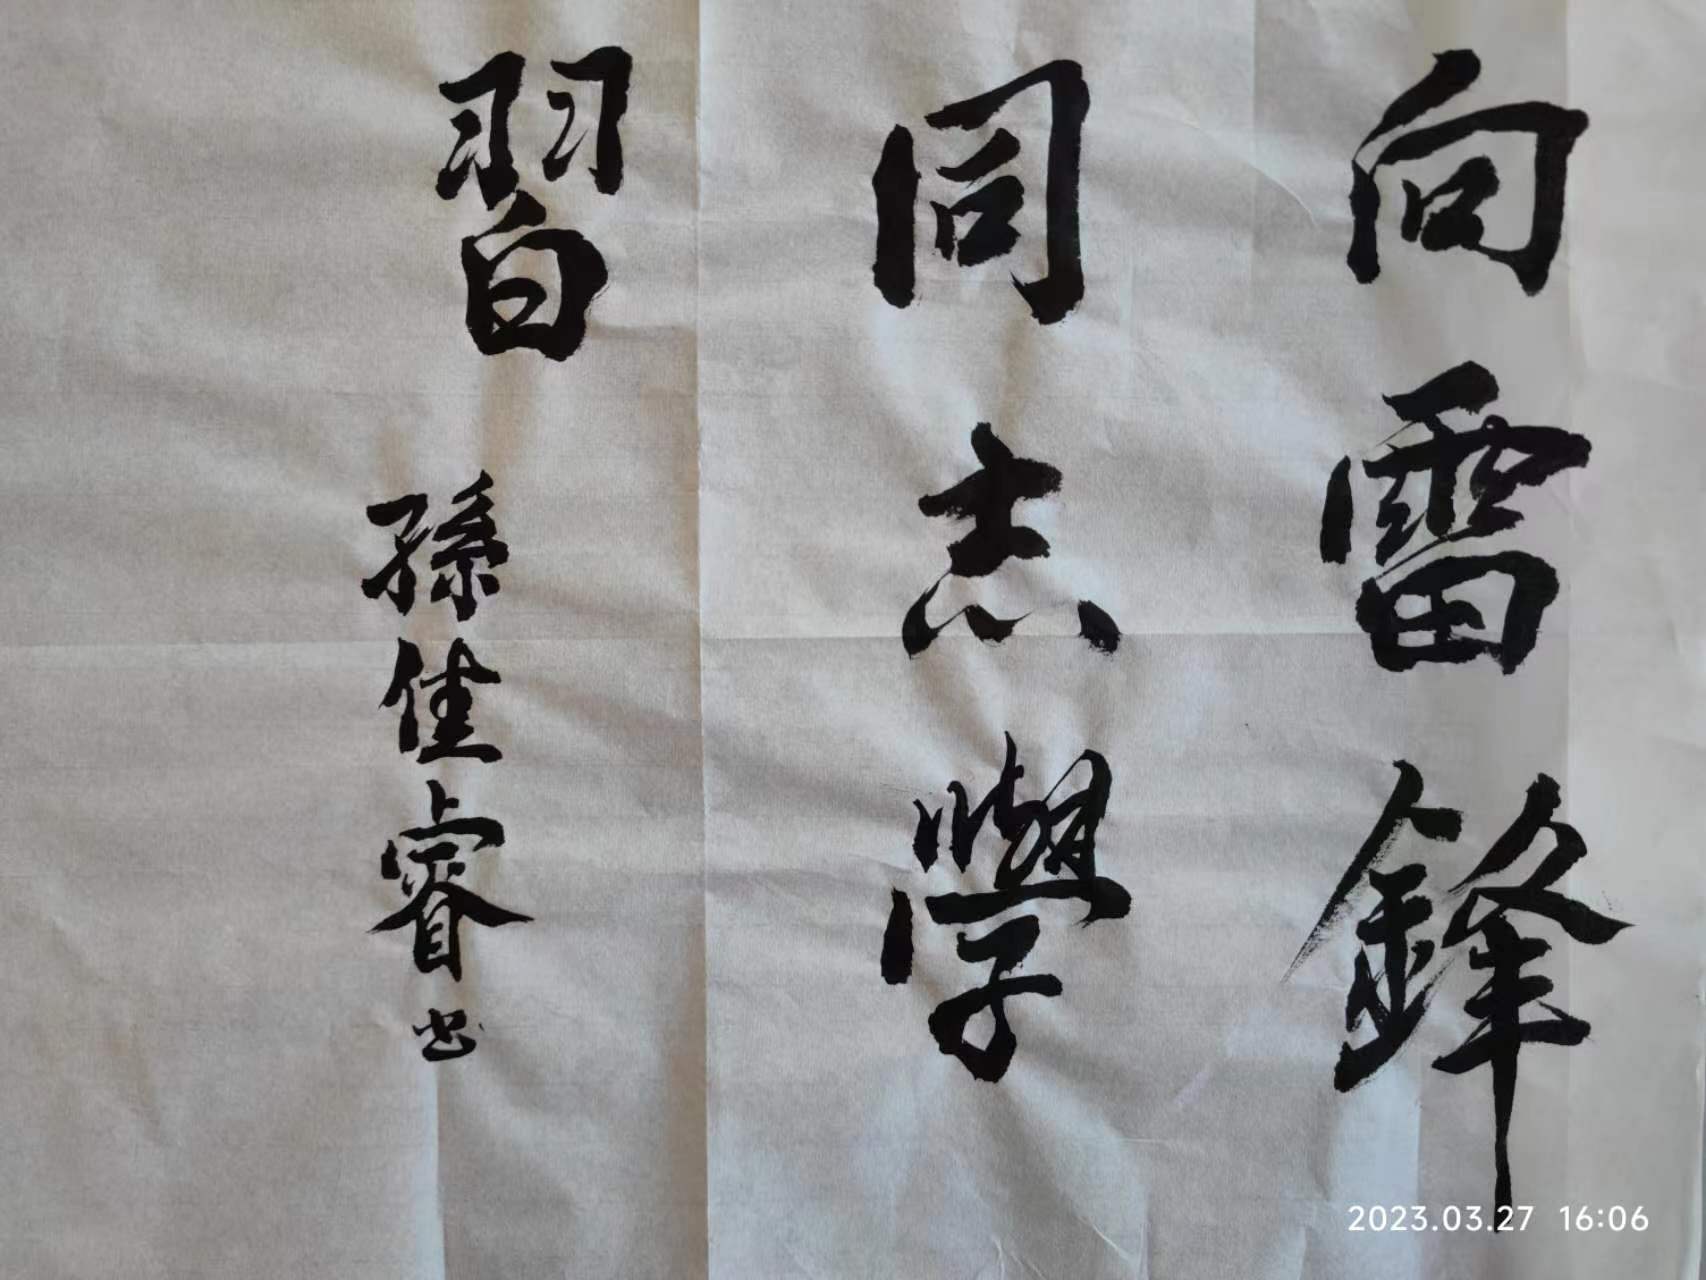 向雷鋒
同志學
習
孫佳睿书
2023.03.27 16:06